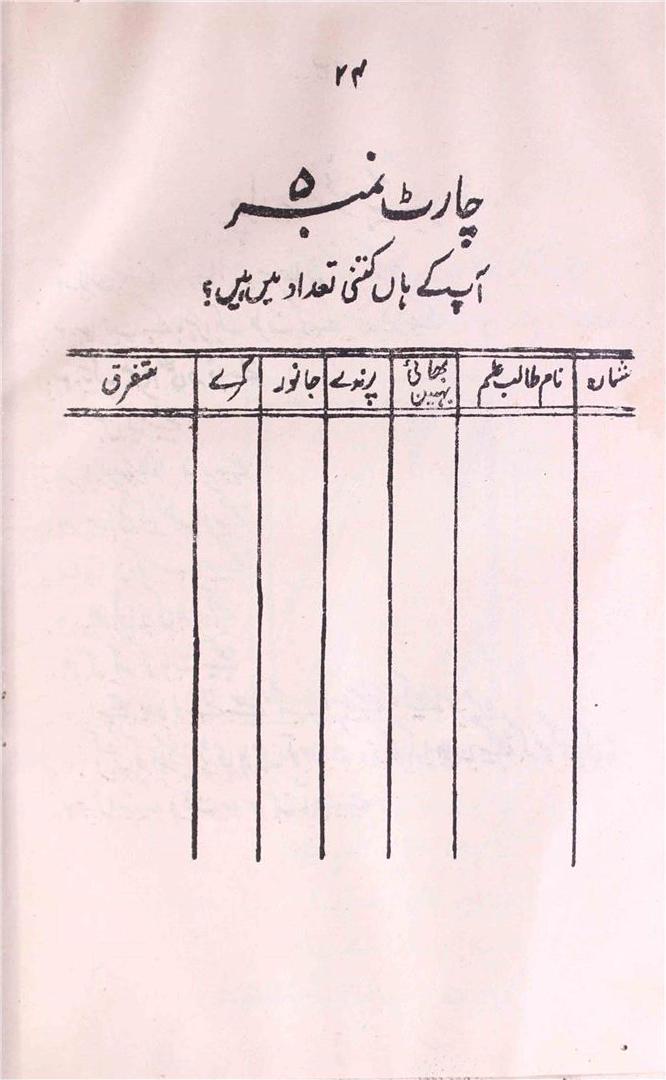 ۲۴
چارٹ نمبر ۵
آپ کے ہاں کتنی تعداد میں ہیں؟
شمارہ | نام طالب علم | بھائی بہین | پرندے | جانور | کمرے | متفرق